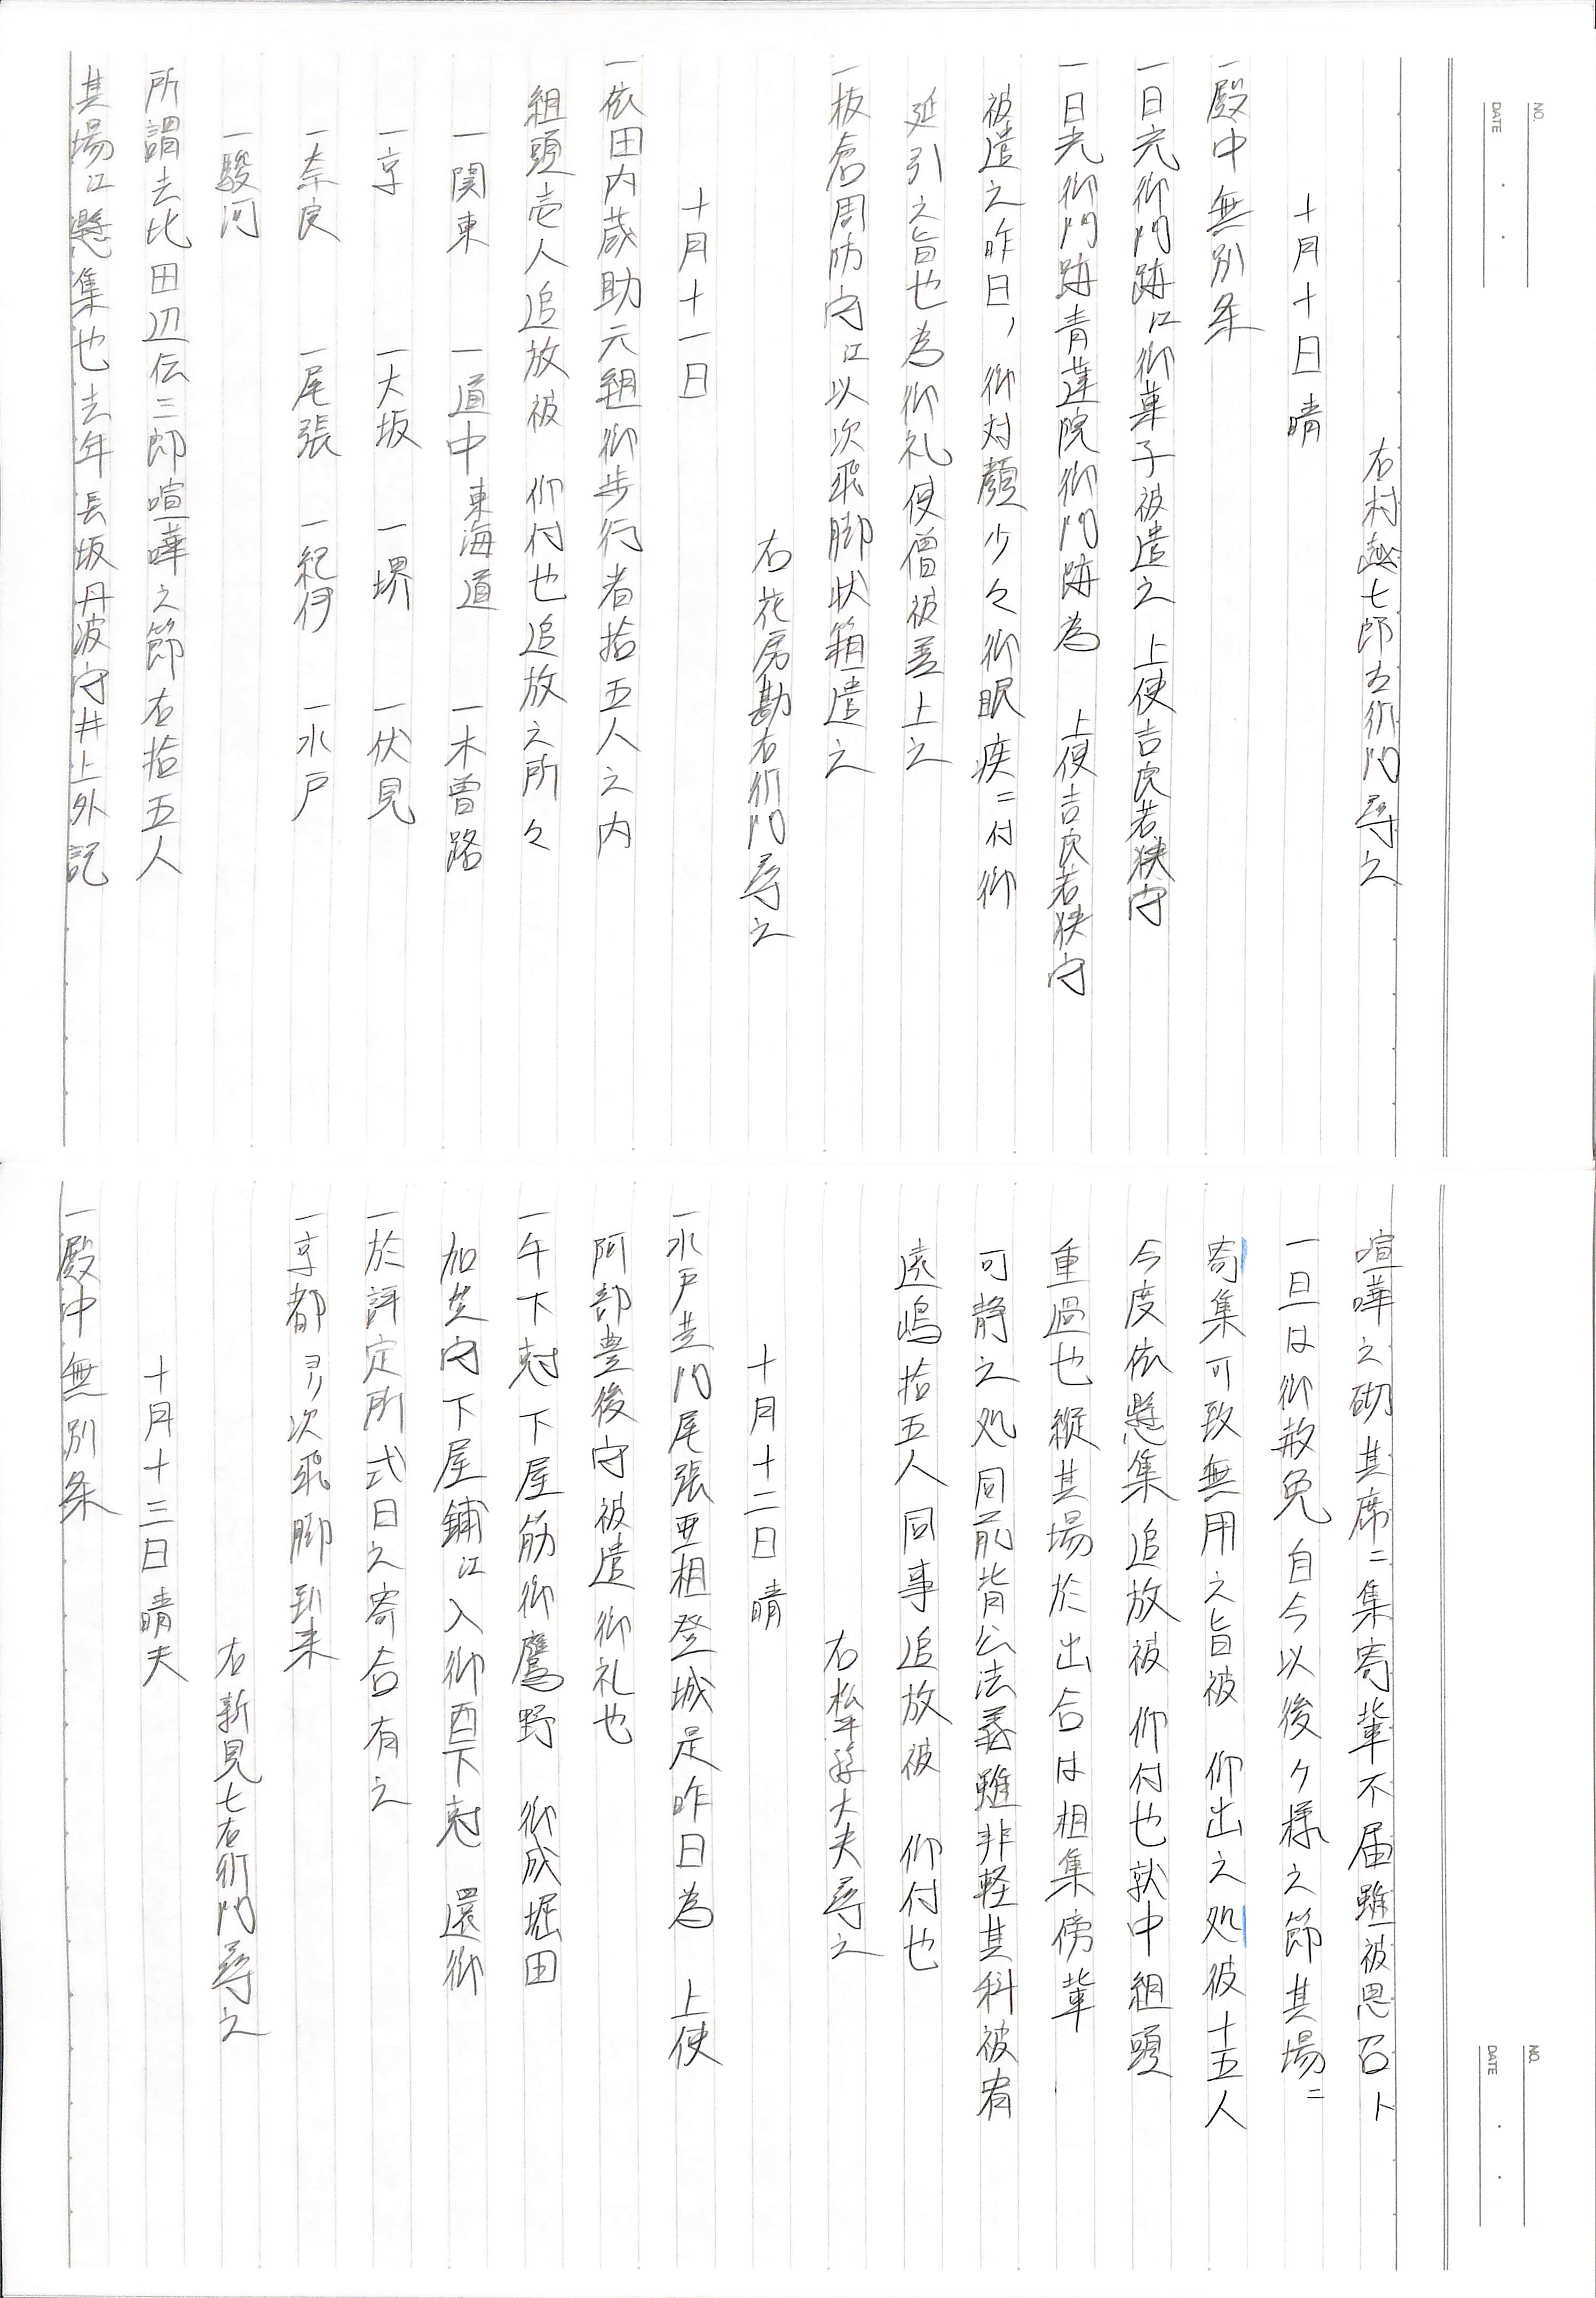 NO.
DATE
右村越七郎左衛門尋之
十月十日晴
一殿中無別条
一日光御門跡江御菓子被遣之　上使吉良若狭守
一日光御門跡青蓮院御門跡為　上使吉良若狭守
被遣之昨日、御対顔少々御眼疾ニ付御
延引之旨也為御礼使僧被差上之
一板倉周防守江以次飛脚状箱遣之
右花房勘右衛門尋之
十月十一日
一依田内蔵助元組御歩行者拾五人之内
組頭壱人追放被　仰付也追放之所々
一関東　一道中東海道　一木曽路
一京　一大坂　一堺　一伏見
一奈良　一尾張　一紀伊　一水戸
一駿河
所謂去比田辺伝三郎喧嘩之節右拾五人
其場江懸集也去年長坂丹波守井上外記
NO.
DATE
喧嘩之砌其席ニ集寄輩不届雖被思召ト
一旦は御赦免自今以後ケ様之節其場ニ
寄集可致無用之旨被　仰出之処彼十五人
今度依懸集追放被　仰付也就中組頭
重過也縦其場於出合は相集傍輩
可静之処同前背公法義雖非軽其科被宥
遠嶋拾五人同事追放被　仰付也
右松平孫大夫尋之
十月十二日晴
一水戸黄門尾張亜相登城是昨日為　上使
阿部豊後守被遣御礼也
一午下尅下屋筋御鷹野　御成堀田
加賀守下屋鋪江入御酉下尅　還御
一於評定所式日之寄合有之
一京都ヨリ次飛脚到来
右新見七右衛門尋之
十月十三日晴天
一殿中無別条